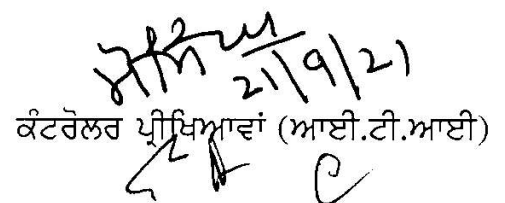 21/9/21
ਕੰਟਰੋਲਰ ਪ੍ਰੀਖਿਆਵਾਂ (ਆਈ.ਟੀ.ਆਈ)